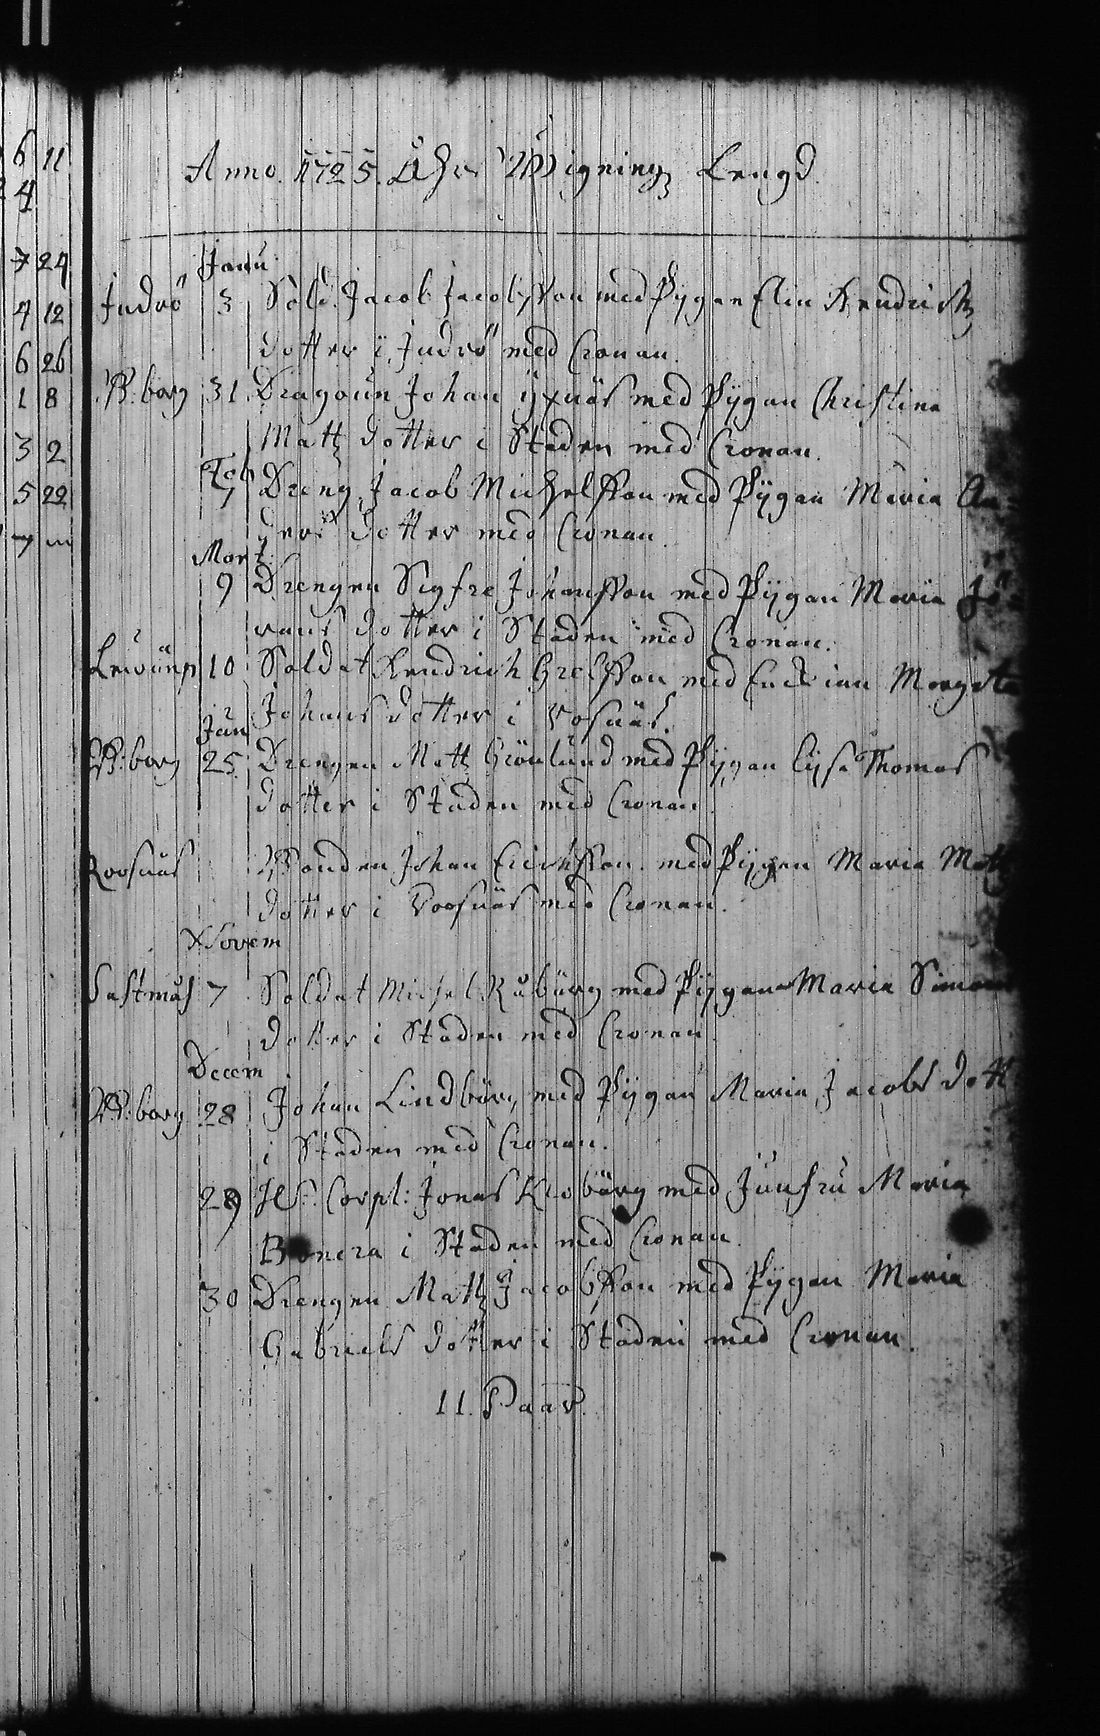 6 11
4
7 24
4 12
6 26
1 8
3 2
5 22
Anno 1725 Åhrs Wigning Lengd
Janu
Judrö 3 Sold. Jacob Jacobsson med Pygan Elin Hendrichs
dotter i Judrö med Cronan.
W:borg 31 Dragoun Johan med Pygan Christina
Matz dotter i Staden med Cronan.
Feb
7 Dreng Jacob Michelsson med Pygan Maria An-
ders dotter med Cronan.
Mart
9 Drengen Sigfre Johansson med Pygan Maria Jö-
rans dotter i Staden med Cronan.
10 Soldat Hendrich Grelsson med Enckian Margeta
Johans dotter i Rosnäs.
Jun
W:borg 25 Drengen Matz Grönlund med Pygan Lysa Thomas
dotter i Staden med Cronan.
Roosnäs Bonden Johan Erichsson med Pygan Maria Matz
dotter i Roosnäs med Cronan.
Novem
Sastmås 7 Soldat Michel Råbärg med Pygan Maria Simons
dotter i Staden med Cronan.
Decem
W:borg 28 Johan Lindbärg med Pygan Maria Jacobs dott
i Staden med Cronan.
29 Corpl: Jonas med Junfru Maria
i Staden med Cronan.
30 Drengen Matz Jacobsson med Pygan Maria
Gabriels dotter i Staden med Cronan.
11. Paar.